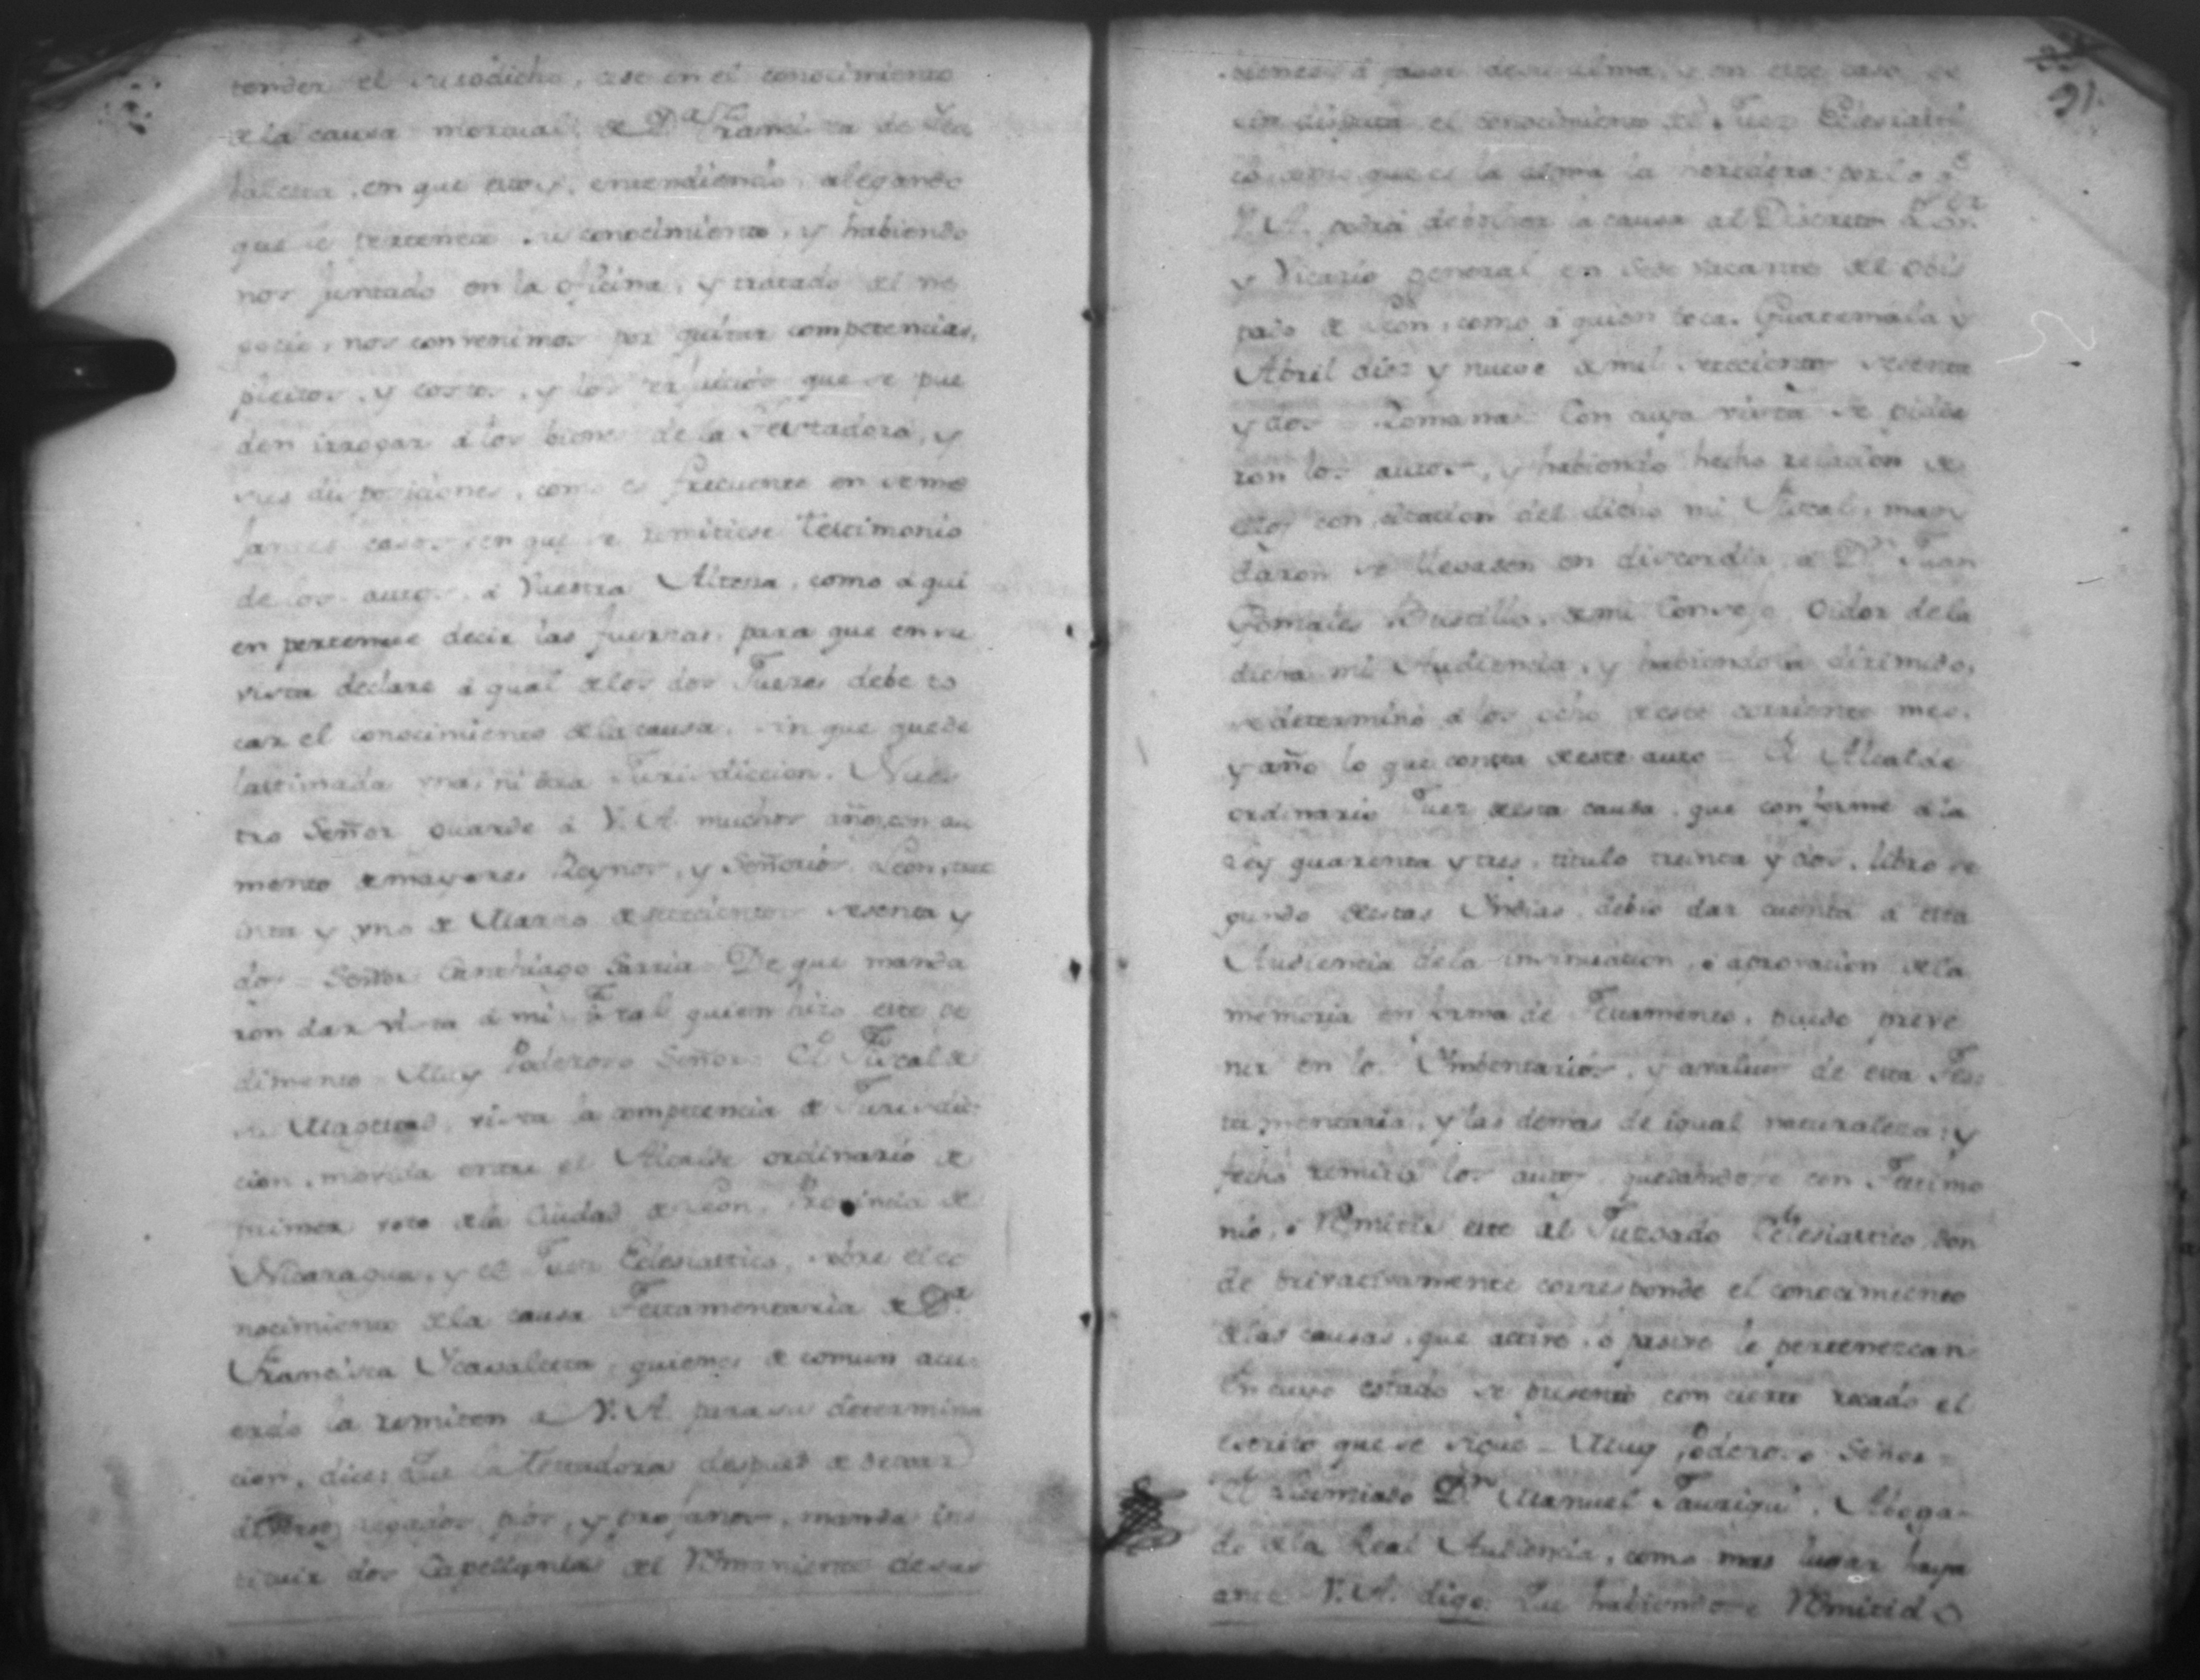 tender el susodicho, ese en el conocimiento
de la causa mortual de Da. Francisca de
en que estoy entendiendo, alegando
que le pertenece su conocimiento, y habiendo
nos juntado en la oficina, y tratado el ne
gocio, nos convenimos por quitar competencias,
pleitos, y costos, y los perjuicios que se pue
den irrogar á los bienes de la Testadora, y
sus disposiciones, como es frecuente en seme
jantes casos en que se remitiese testimonio
de los autos, á Vuestra Alteza, como á qui
en pertenece decir las fuerzas, para que en su
vista declare á qual de los dos Jueces debe to
car el conocimiento de la causa, sin que quede
lastimada una, ni otra Jurisdiccion. Nues
tro Señor guarde á V. A. muchos años, con au
mento de mayores Reynos, y Señorios. Leon, tre
inta y uno de Marzo de setecientos sesenta y
dos = Señor Sarria = De que manda
ron dar vista á mi Fiscal quien hizo este pe
dimento = Muy Poderoso Señor = El Fiscal de
su Magestad, vista la competencia de Jurisdic
cion, movida entre el Alcalde ordinario de
primer voto de la Ciudad de Leon, Provincia de
Nicaragua, y el Juez Eclesiastico, sobre el co
nocimiento de la causa Testamentaria de Da.
Francisca Ycavalceta, quienes de comun acu
erdo la remiten a V. A. para su determina
cion, dice: Que la Testadora despues de dexar
diversos legados pios, y profanos, manda ins
tituir dos Capellanias del Remaniente de sus
31.
bienes á favor de su alma, y en este caso es
sin disputa el conocimiento del Juez Eclesiasti
co que es la alma la heredera: por lo qe
V. A. podrá debolver la causa al Discreto
y Vicario general en Sede vacante del Obis
pado de Leon, como á quien toca. Guatemala y
Abril diez y nueve de mil setecientos sesenta
y dos = Romana = Con cuya vista se pidie
ron los autos, y habiendo hecho relacion de
ellos con citacion del dicho mi Fiscal, man
daron se llevasen en discordia á Dn. Juan
Gonzales Bustillo, de mi Consejo Oidor de la
dicha mi Audiencia, y habiendola dirimido,
se determinó á los ocho de este corriente mes,
y año lo que consta de este auto = El Alcalde
ordinario Juez de esta causa, que conforme á la
Ley quarenta y tres, titulo treinta y dos, libro se
gundo de estas Yndias, debió dar cuenta á esta
Audiencia de la insinuacion, ó aprovacion de la
memoria en forma de Testamento, puede preve
nir en los Ymbentarios, y avaluos de esta Tes
tamentaria, y las demas de igual naturaleza; y
fecho remitia los autos, quedandose con Testimo
nio, ó Remitir este al Juzgado Eclesiastico, don
de privativamente corresponde el conocimiento
de las causas, que activo, ó pasivo le pertenezcan
En cuyo estado se presentó con cierto recado el
escrito que se sigue = Muy Poderoso Señor =
El Licenciado Dn. Manuel Jauregui, Aboga
do de la Real Audiencia, como mas lugar haya
ante V. A. digo: Que habiendose Remitido